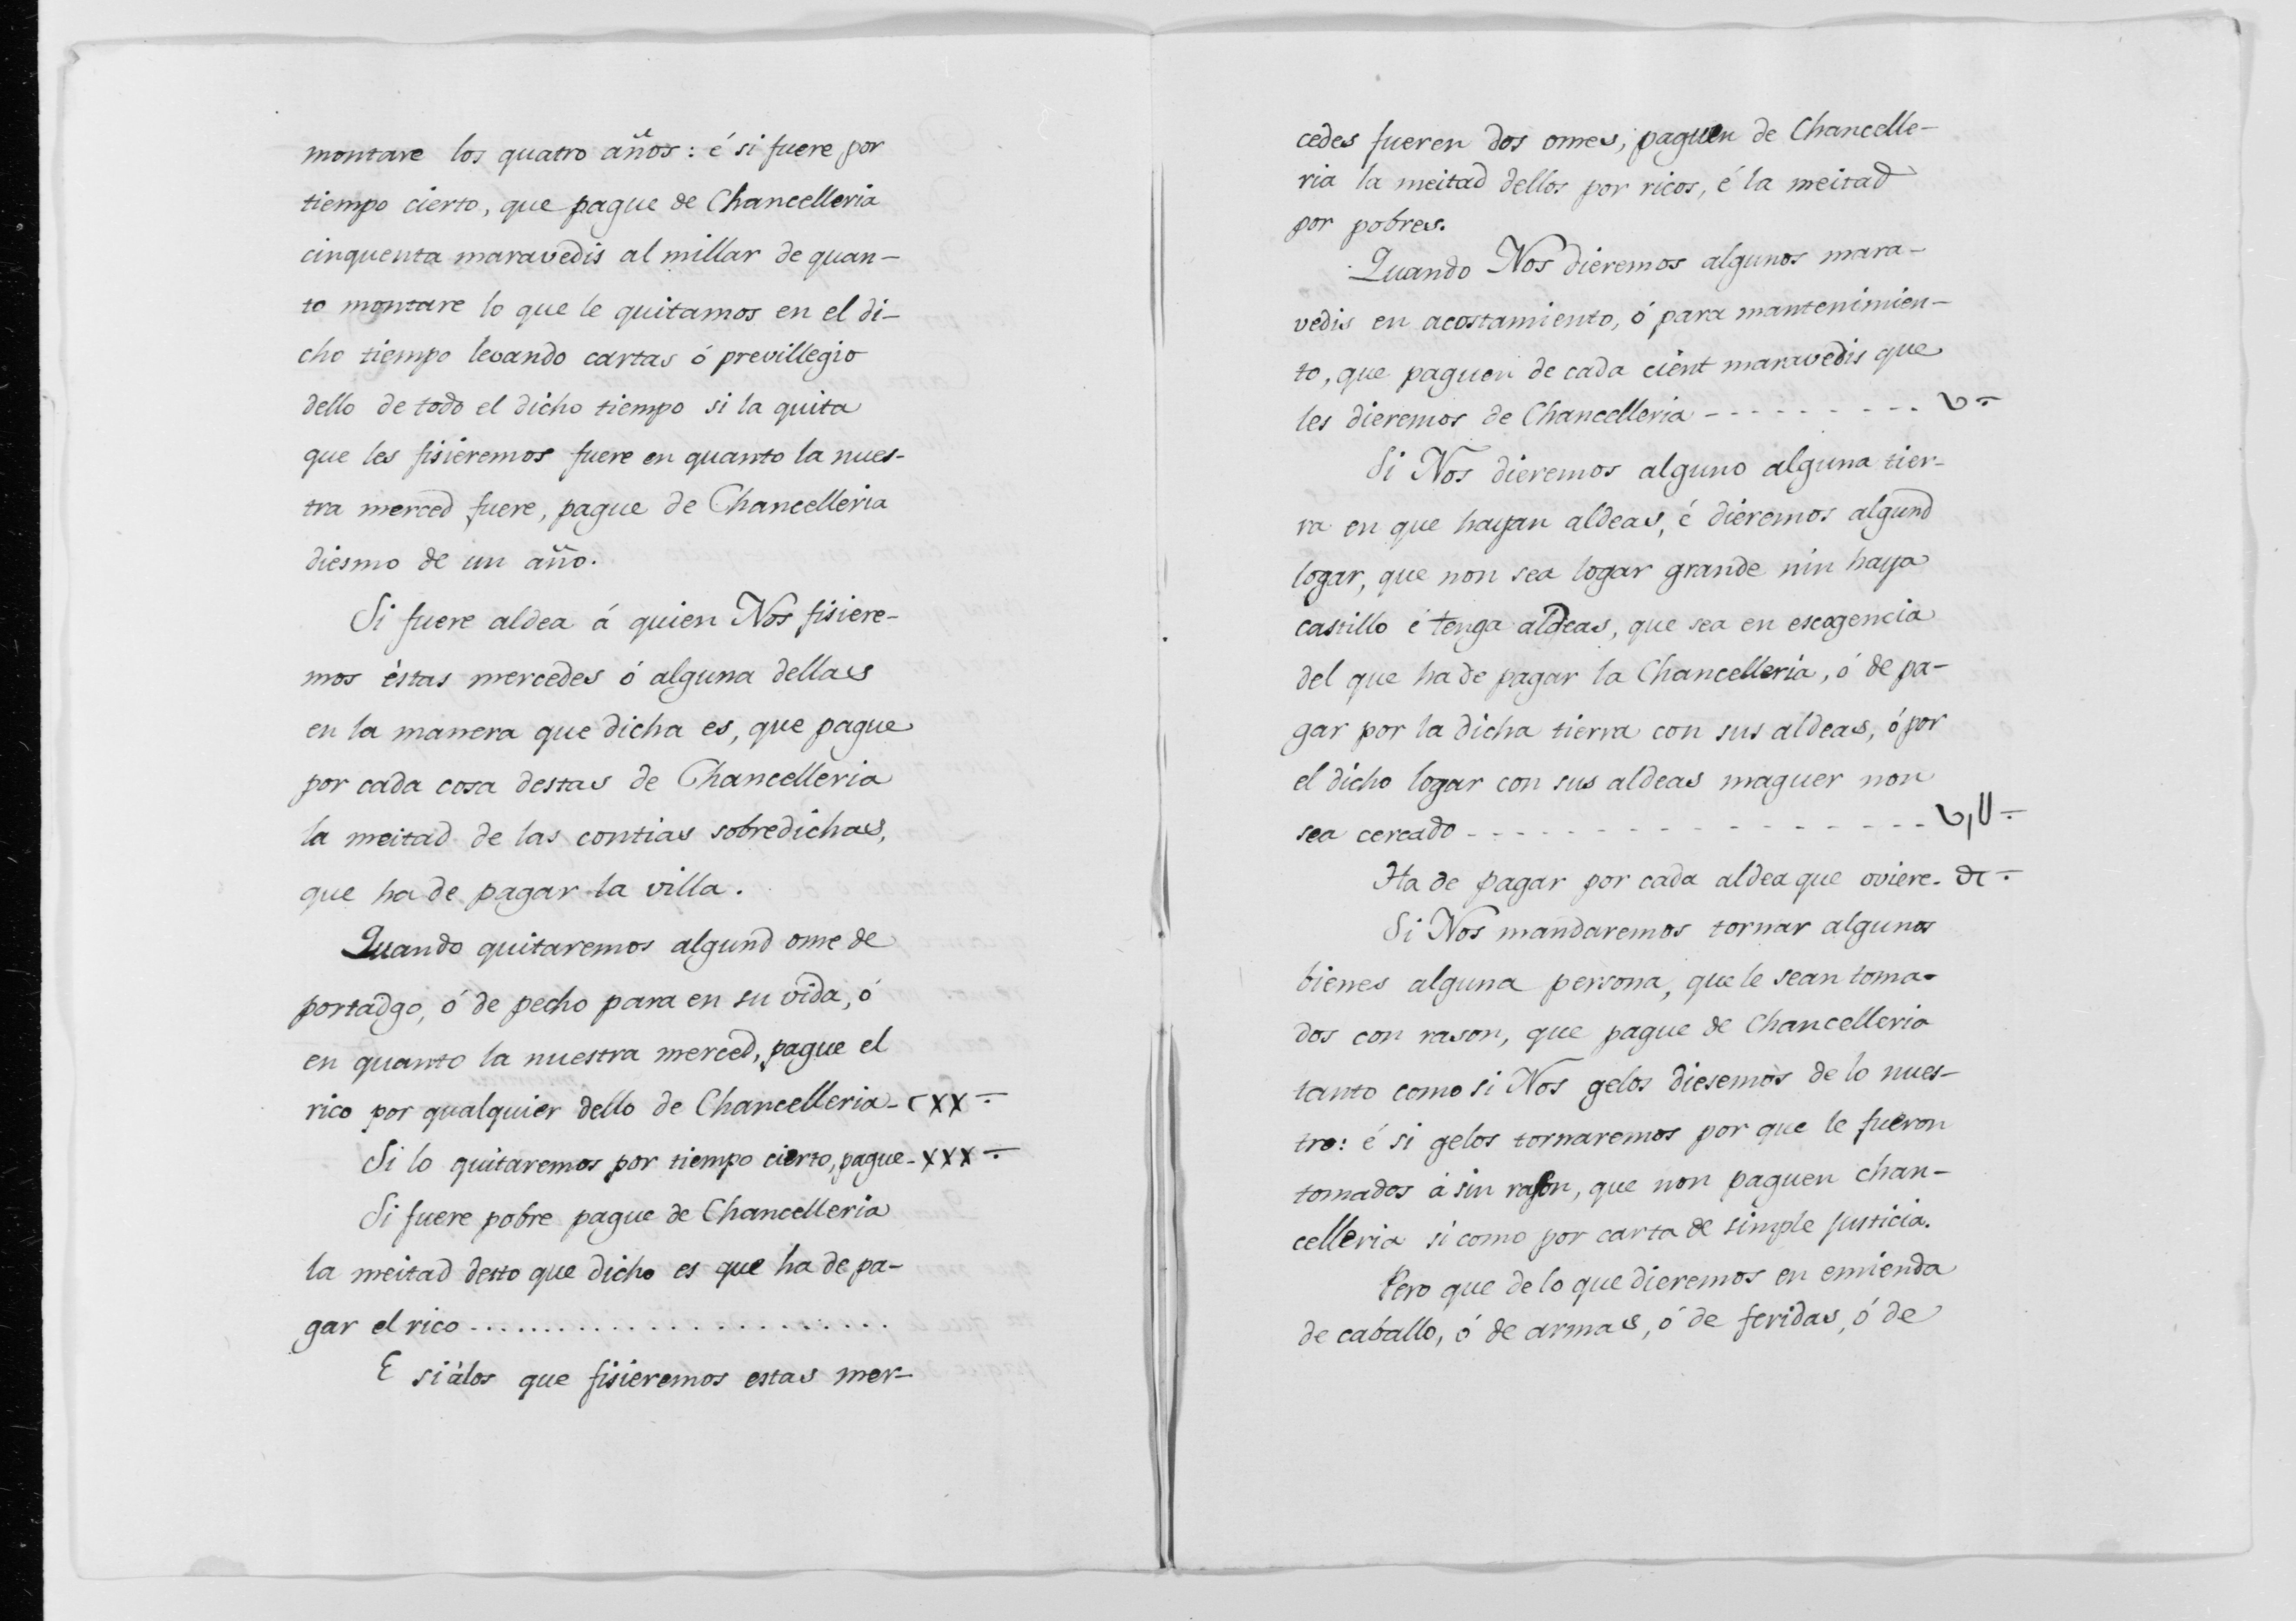 montare los quatro años: é si fuere por
tiempo cierto, que pague de Chancelleria
cinquenta maravedis al millar de quan-
to montare lo que le quitamos en el di-
cho tiempo levando cartas ó previllegio
dello de todo el dicho tiempo si la quita
que les fisieremos fuere en quanto la nues-
tra merced fuere, pague de Chancelleria
diesmo de un año.
Si fuere aldea á quien Nos fisiere-
mos éstas mercedes ó alguna dellas
en la manera que dicha es, que pague
por cada cosa destas de Chancelleria
la meitad de las contias sobredichas,
que ha de pagar la villa.
Quando quitaremos algund ome de
portadgo, ó de pecho para en su vida, ó
en quanto la nuestra merced, pague el
rico por qualquier dello de Chancelleria - CXX
Si lo quitaremos por tiempo cierto, pague - XXX
Si fuere pobre pague de Chancelleria
la meitad desto que dicho es que ha de pa-
gar el rico . . . . . . . . . . . . . . . . . . . . . . .
E si álos que fisieremos estas mer-
cedes fueren dos omes, paguen de Chancelle-
ria la meitad dellos por ricos, é la meitad
por pobres.
Quando Nos dieremos algunos mara-
vedis en acostamiento, ó para mantenimien-
to, que paguen de cada cient maravedis que
les dieremos de Chancelleria - - - - - - - - -
Si Nos dieremos alguno alguna tier-
ra en que hayan aldeas, é dieremos algund
logar, que non sea logar grande nin haya
castillo é tenga aldeas, que sea en escogencia
del que ha de pagar la Chancelleria, ó de pa-
gar por la dicha tierra con sus aldeas, ó por
el dicho logar con sus aldeas maguer non
sea cercado - - - - - - - - - - - - - - - -
Ha de pagar por cada aldea que oviere.
Si Nos mandaremos tornar algunos
bienes alguna persona, que le sean toma-
dos con rason, que pague de Chancelleria
tanto como si Nos gelos diesemos de lo nues-
tro: é si gelos tornaremos por que le fueron
tomados á sin rason, que non paguen chan-
celleria si como por carta de simple justicia.
Pero que de lo que dieremos en emienda
de caballo, ó de armas, ó de feridas, ó de